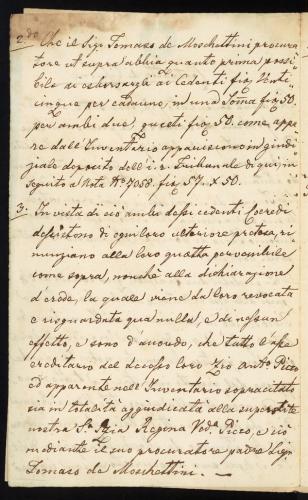 2.do Che il Sigr Tomaso de Moschettini procura
tore ut supra abbia quanto prima possi
bile di esborsargli ai Cedenti fio. Venti
cinque per cadauno, in una Soma fio. 50.
per ambi due, questi fio. 50. come appe
re dall'Inventario appariscono in giu
diziale deposito dell'i. r. Tribunale di qui, in
seguito a Nota No. 7058. fio. 57. x 50.
3. In vista di ciò ambi dessi cedenti Coeredi
desistono di ogni loro ulteriore pretesa, ri
nunziano alla loro quotta pervenibile
come sopra, nonchè alla dichiarazione
d'erede, la quale viene da loro revocata
e risguardata qua nulla, e di nessun
effetto, e sono d'accordo, che tutto l'asse
ereditario del decesso loro Zio Anto. Pizzo
ed apparente nell'Inventario sopracitato
sia in totalità aggiudicata alla superstite
nostra Sa. Zia Regina Veda. Pizzo, e ciò
mediante il suo procuratore padre Sigr
Tomaso de Moschettini. —